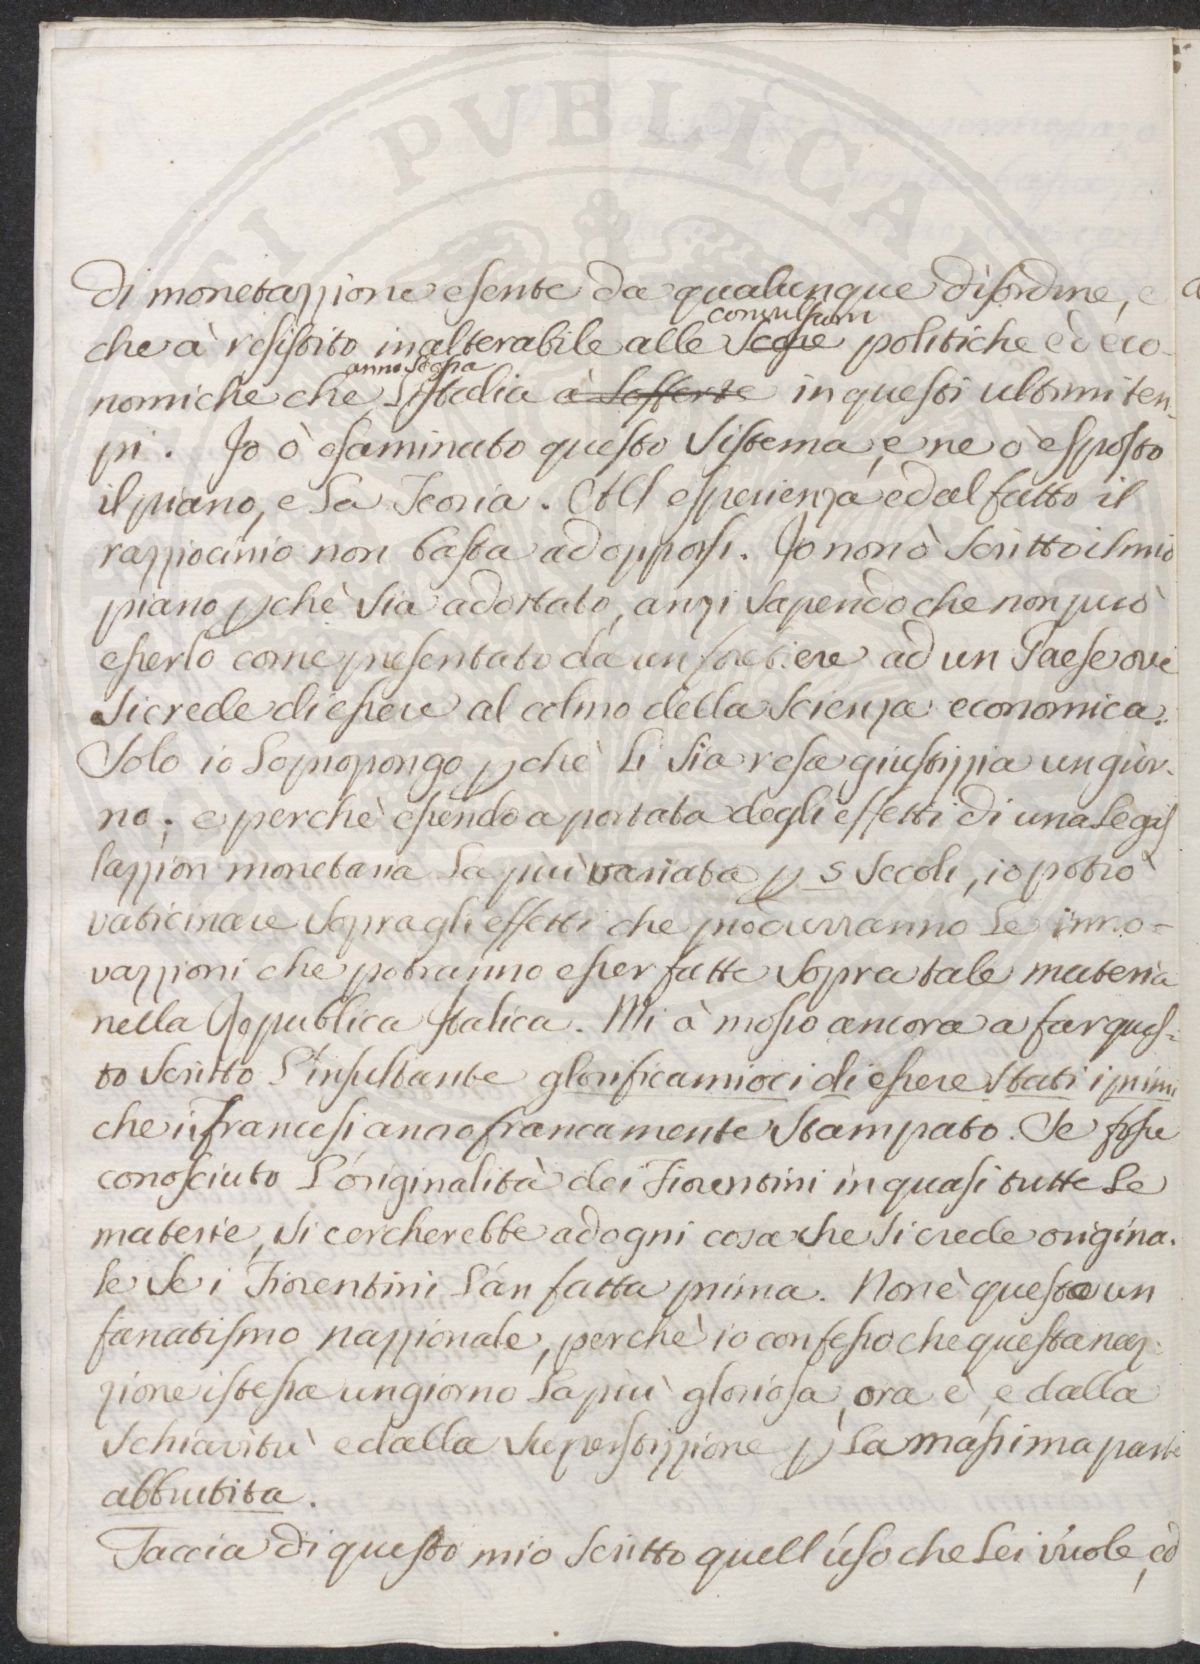 di monetazzione esente da qualunque disordine, e
che à resistito inalterabile alle convulsioni politiche ed eco-
nomiche che l'Italia à sofferte in questi ultimi tem-
pi. Io ò esaminato questo sistema, e ne ò esposto
il piano, e la Teoria. All esperienza ed al fatto il
razziocinio non basta ad opporsi. Io non ò scritto il mio
piano pchè sia adottato, anzi sapendo che non può
esserlo come presentato da un forestiere ad un Paese ove
si crede di essere al colmo della scienza economica.
Solo io lo propongo pchè li sia resa giustizzia un gior-
no; e perchè essendo a portata degli effetti di una legis
lazzion monetaria la più variata p 5 secoli, io potrò
vaticinare sopra gli effetti che procurranno le inno-
vazzioni che potranno esser fatte sopra tale materia
nella Repubblica Italica. Mi à mosso ancora a far ques-
to scritto l'insultante glorificamioci di essere stati i primi
che i Francesi anno francamente stampato. Se fosse
conosciuto l'originalità dei Fiorentini in quasi tutte le
materie, si cercherebbe ad ogni cosa che si crede origina-
le se i Fiorentini l'àn fatta prima. Non è questo un
fanatismo nazzionale, perchè io confesso che questa naz-
zione istessa un giorno la più gloriosa, ora è, e dalla
schiavitù e dalla superstizzione p la massima parte
abbrutita.
Faccia di questo mio scritto quell'uso che lei vuole, ed